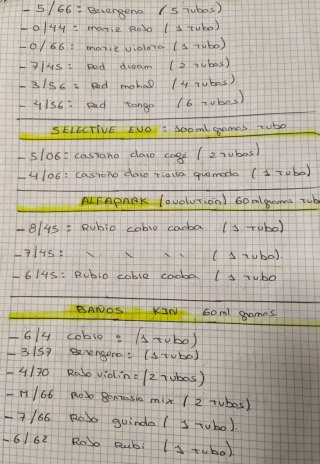 - 5/66 : Berengena (5 tubos)
- 0/44 : matiz Rojo (1 tubo)
- 0/66 : matiz violeta (1 tubo)
- 7/45 : Red dream (2 tubos)
- 3/56 : Red mohal (4 tubos)
- 4/56 : Red Tango (6 tubos)
SELECTIVE EVO : 100 ml gramos tubo
- 5/06 : castaño claro café (2 tubos)
- 4/06 : castaño claro tierra quemada (1 tubo)
ALFAPARK (evolution) 60 ml gramos tubo
- 8/45 : Rubio cobre caoba (1 tubo)
- 7/45 : \ \ \ (1 tubo).
- 6/45 : Rubio cobre caoba (1 tubo
BAÑOS KIN 60 ml gramos
- 6/4 cobre : (1 tubo)
- 3/57 Berengena : (1 tubo)
- 4/70 Rojo violín : (2 tubos)
- M/66 Rojo fantasia mix (2 tubos)
- 7/66 Rojo guinda (1 tubo)
- 6/62 Rojo Rubi (1 tubo)